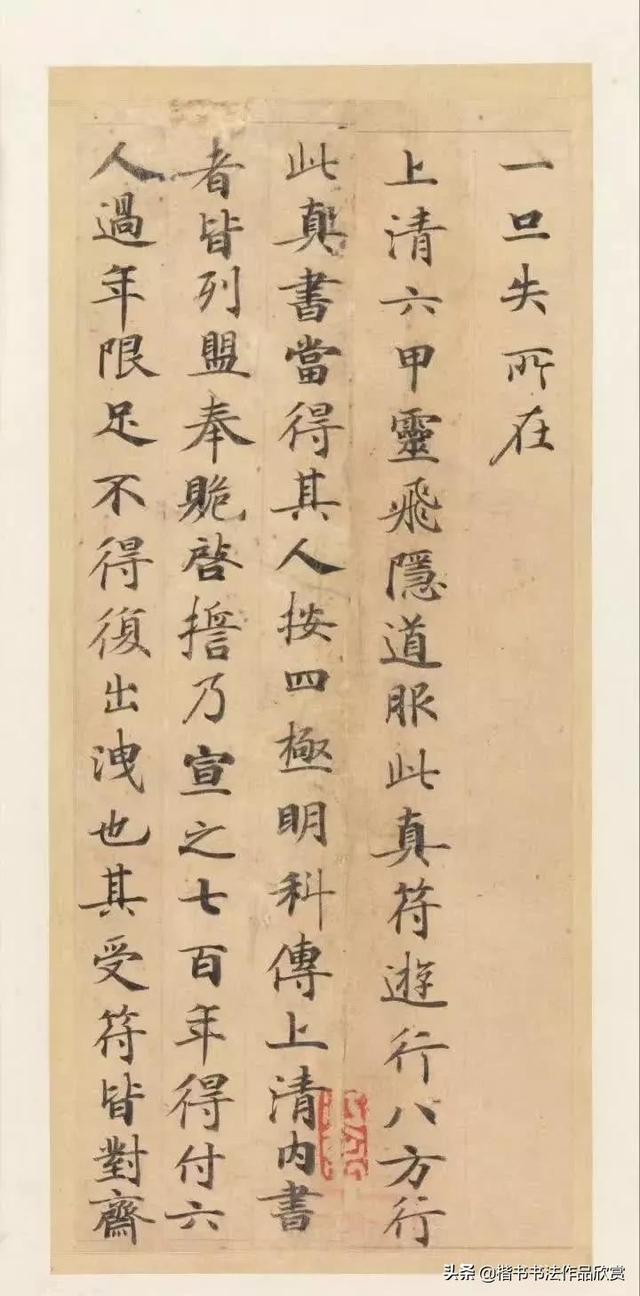 一旦失所在
上清六甲靈飛隱道服此真符遊行八方行
此真書當得其人按四極明科傳上清內書
者皆列盟奉貺啓擔乃宣之七百年得付六
人過年限足不得復出洩也其受符皆對齋
头条 @楷书书法作品欣赏